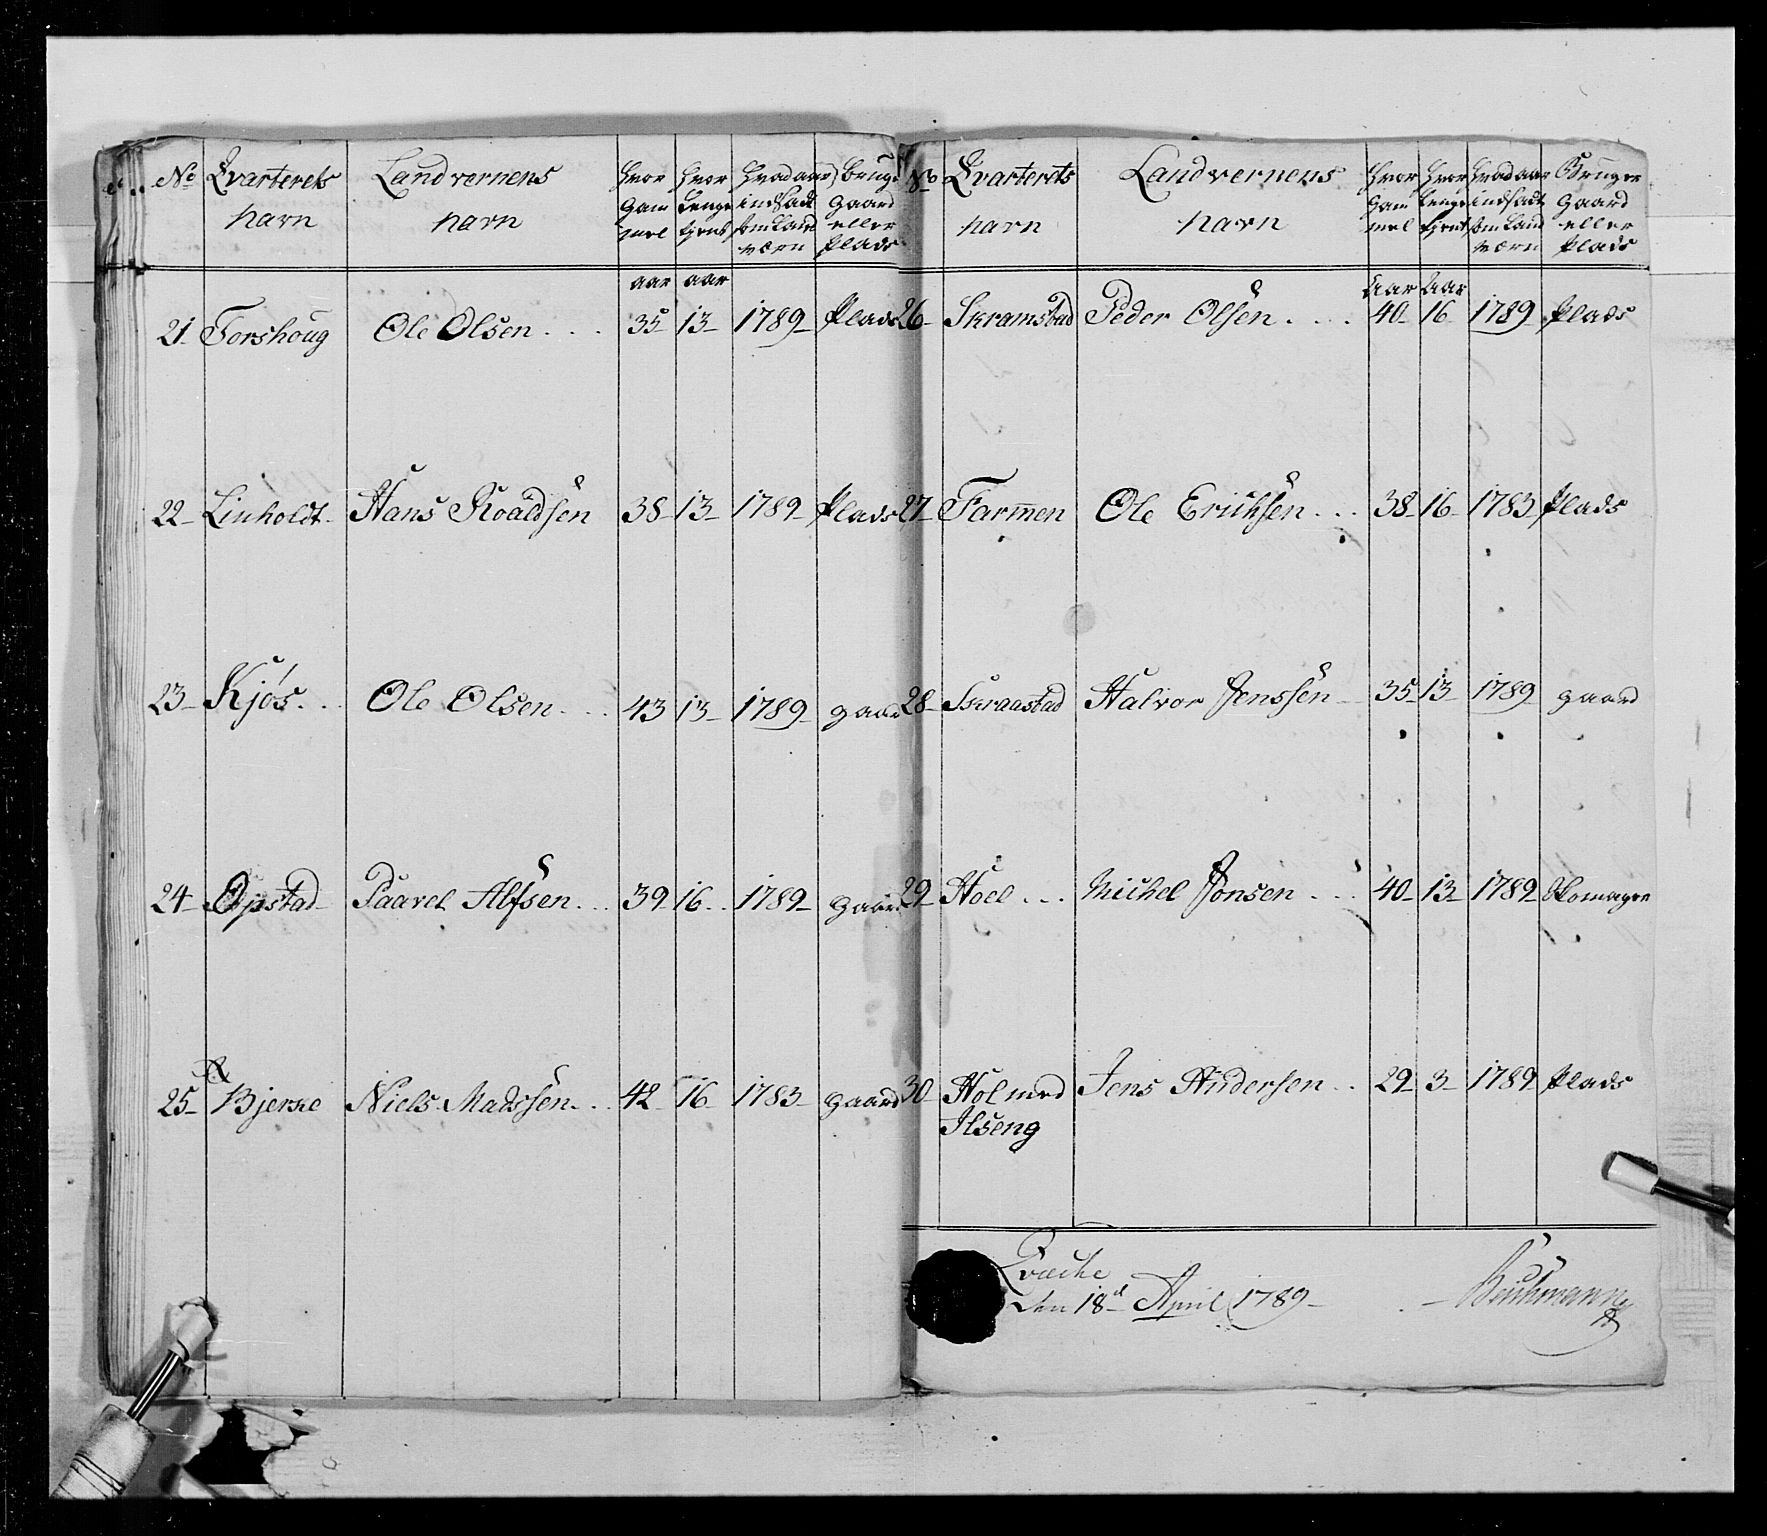 No Qvarterets Landvernens Hvor Hvor Hvad aar Bruge
navn navn Gam Lenge indsadt Gaard
mel tjent som Land eller
værn Plads
aar aar
21 Forshoug Ole Olsen 35 13 1789 Plads
22 Linholdt Hans Roaldsen 38 13 1789 Plads
23 Kjøs Ole Olsen 43 13 1789 gaard
24 Opstad Paavel Alfsen 39 16 1789 gaard
25 Bjerke Niels Madssen 42 16 1783 gaard
No Qvarterets Landvernens Hvor Hvor Hvad aar Bruger
navn navn Gam Lenge indsadt Gaard
mel tjent som Land eller
værn Plads
Aar Aar
26 Skramstad Peder Olsen 40 16 1789 Plads
27 Farmen Ole Erichsen 38 16 1783 Plads
28 Skraastad Halvor Jenssen 35 13 1789 gaard
29 Hoel Michel Jonsen 40 13 1789 Skomager
30 Hol med Jens Andersen 29 3 1789 Plads
Ilseng
Den 18d April 1789